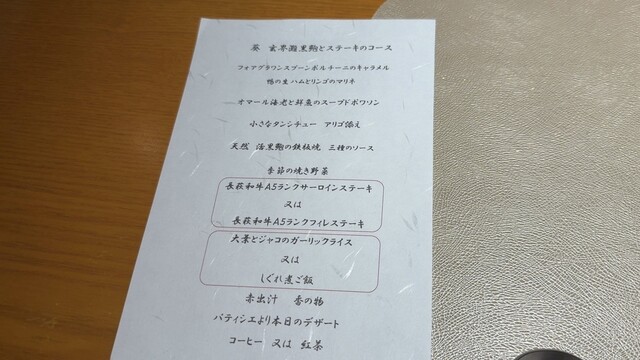 葵 玄界灘黒鮑とステーキのコース
フォアグラワンスプーンポルチーニのキャラメル
鴨の生ハムとリンゴのマリネ
オマール海老と鮮魚のスープドポワソン
小さなタンシチュー アリゴ添え
天然 活黒鮑の鉄板焼 三種のソース
季節の焼き野菜
長萩和牛A5ランクサーロインステーキ
又は
長萩和牛A5ランクフィレステーキ
大葉とジャコのガーリックライス
又は
しぐれ煮ご飯
赤出汁 香の物
パティシエより本日のデザート
コーヒー 又は 紅茶